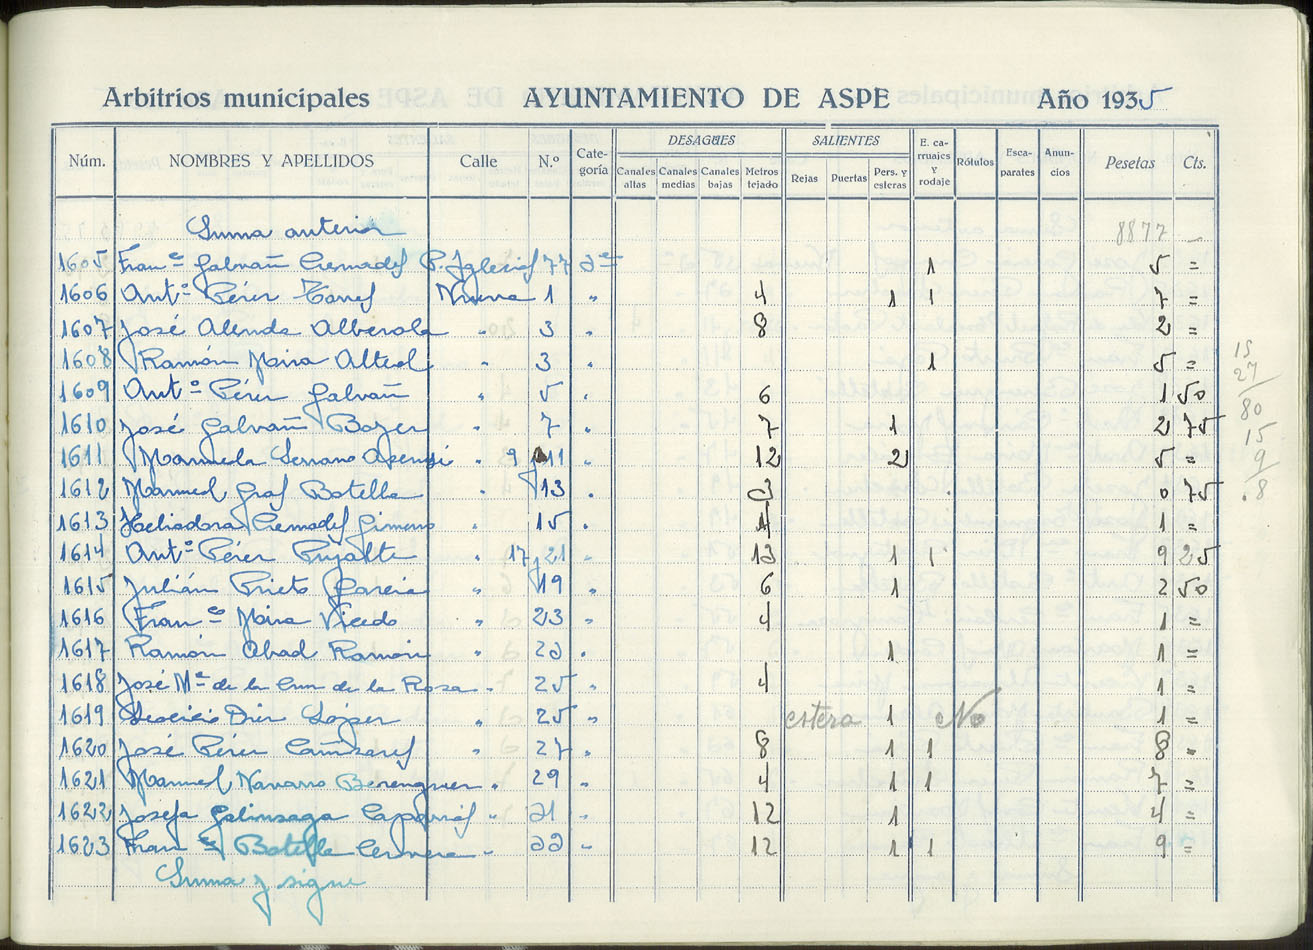 Arbitrios municipales AYUNTAMIENTO DE ASPE Año 1935
Núm. NOMBRES Y APELLIDOS Calle N.º Cate-goría DESAGÜES SALIENTES E. ca-rruajes y rodaje Rótulos Esca-parates Anun-cios Pesetas Cts.
Canales altas Canales medias Canales bajas Metros tejado Rejas Puertas Pers. y esteras
Suma anterior 8877 -
1605 Fran.co Galvañ Cremades P. Iglesias 77 3ª 1 5 =
1606 Ant.º Pérez Torres Nueva 1 " 4 1 1 7 =
1607 José Alenda Alberola " 3 " 8 2 =
1608 Ramón Mira " 3 " 1 5 =
1609 Ant.º Pérez Galvañ " 5 " 6 1 50
1610 José Galvañ Boyer " 7 " 7 1 2 75
1611 Manuela Serrano Asensi " 9 y 11 " 12 2 5 =
1612 Manuel Graf Botella " 13 " 3 0 75
1613 Heliodora Cremades Gimeno " 15 " 4 1 =
1614 Ant.º Pérez Pujalte " 17, 21 " 13 1 1 9 25
1615 Julián Prieto García " 19 " 6 1 2 50
1616 Fran.co Mira Vicedo " 23 " 4 1 =
1617 Ramón Abad Ramón " 23 " 1 1 =
1618 José M.ª de la Cruz de la Rosa " 25 " 4 1 =
1619 Diez López " 25 " estera 1 No 1 =
1620 José Pérez Cañizares " 27 " 8 1 1 8 =
1621 Manuel Navarro Berenguer " 29 " 4 1 1 7 =
1622 Josefa Galinsaga Caparrós " 31 " 12 1 4 =
1623 Fran.co Botella Cervera " 33 " 12 1 1 9 =
Suma y sigue
15
27
80
15
9
.8